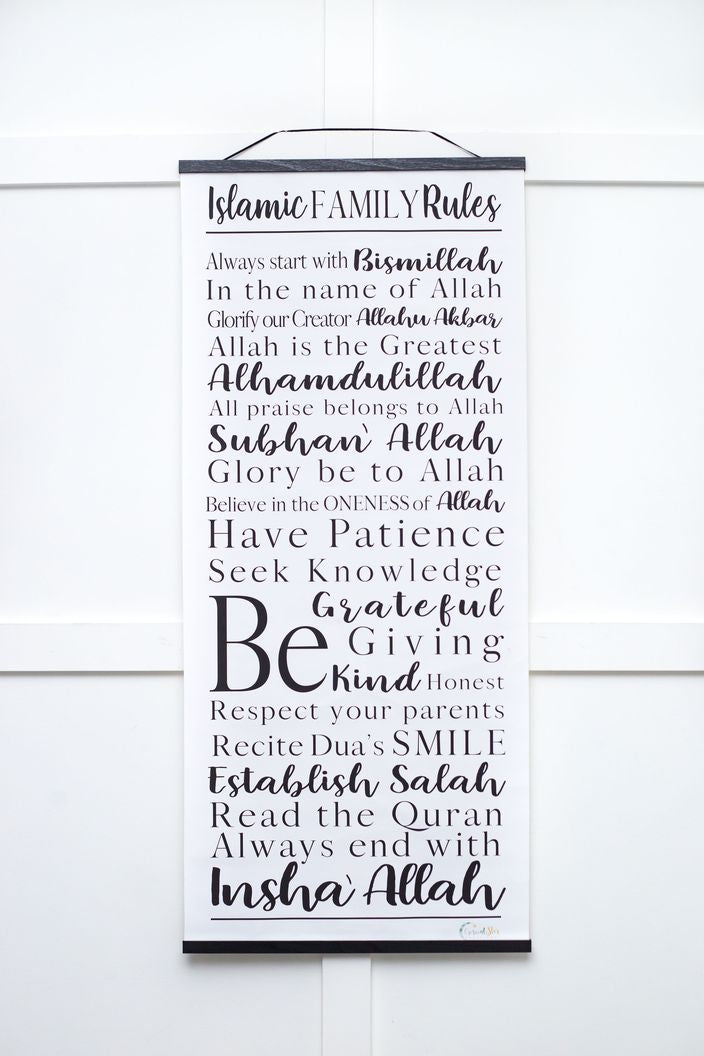 Islamic FAMILY Rules
Always start with Bismillah
In the name of Allah
Glorify our Creator Allahu Akbar
Allah is the Greatest
Alhamdulillah
All praise belongs to Allah
Subhan` Allah
Glory be to Allah
Believe in the ONENESS of Allah
Have Patience
Seek Knowledge
Be Grateful
Giving
Kind Honest
Respect your parents
Recite Dua's SMILE
Establish Salah
Read the Quran
Always end with
Insha` Allah